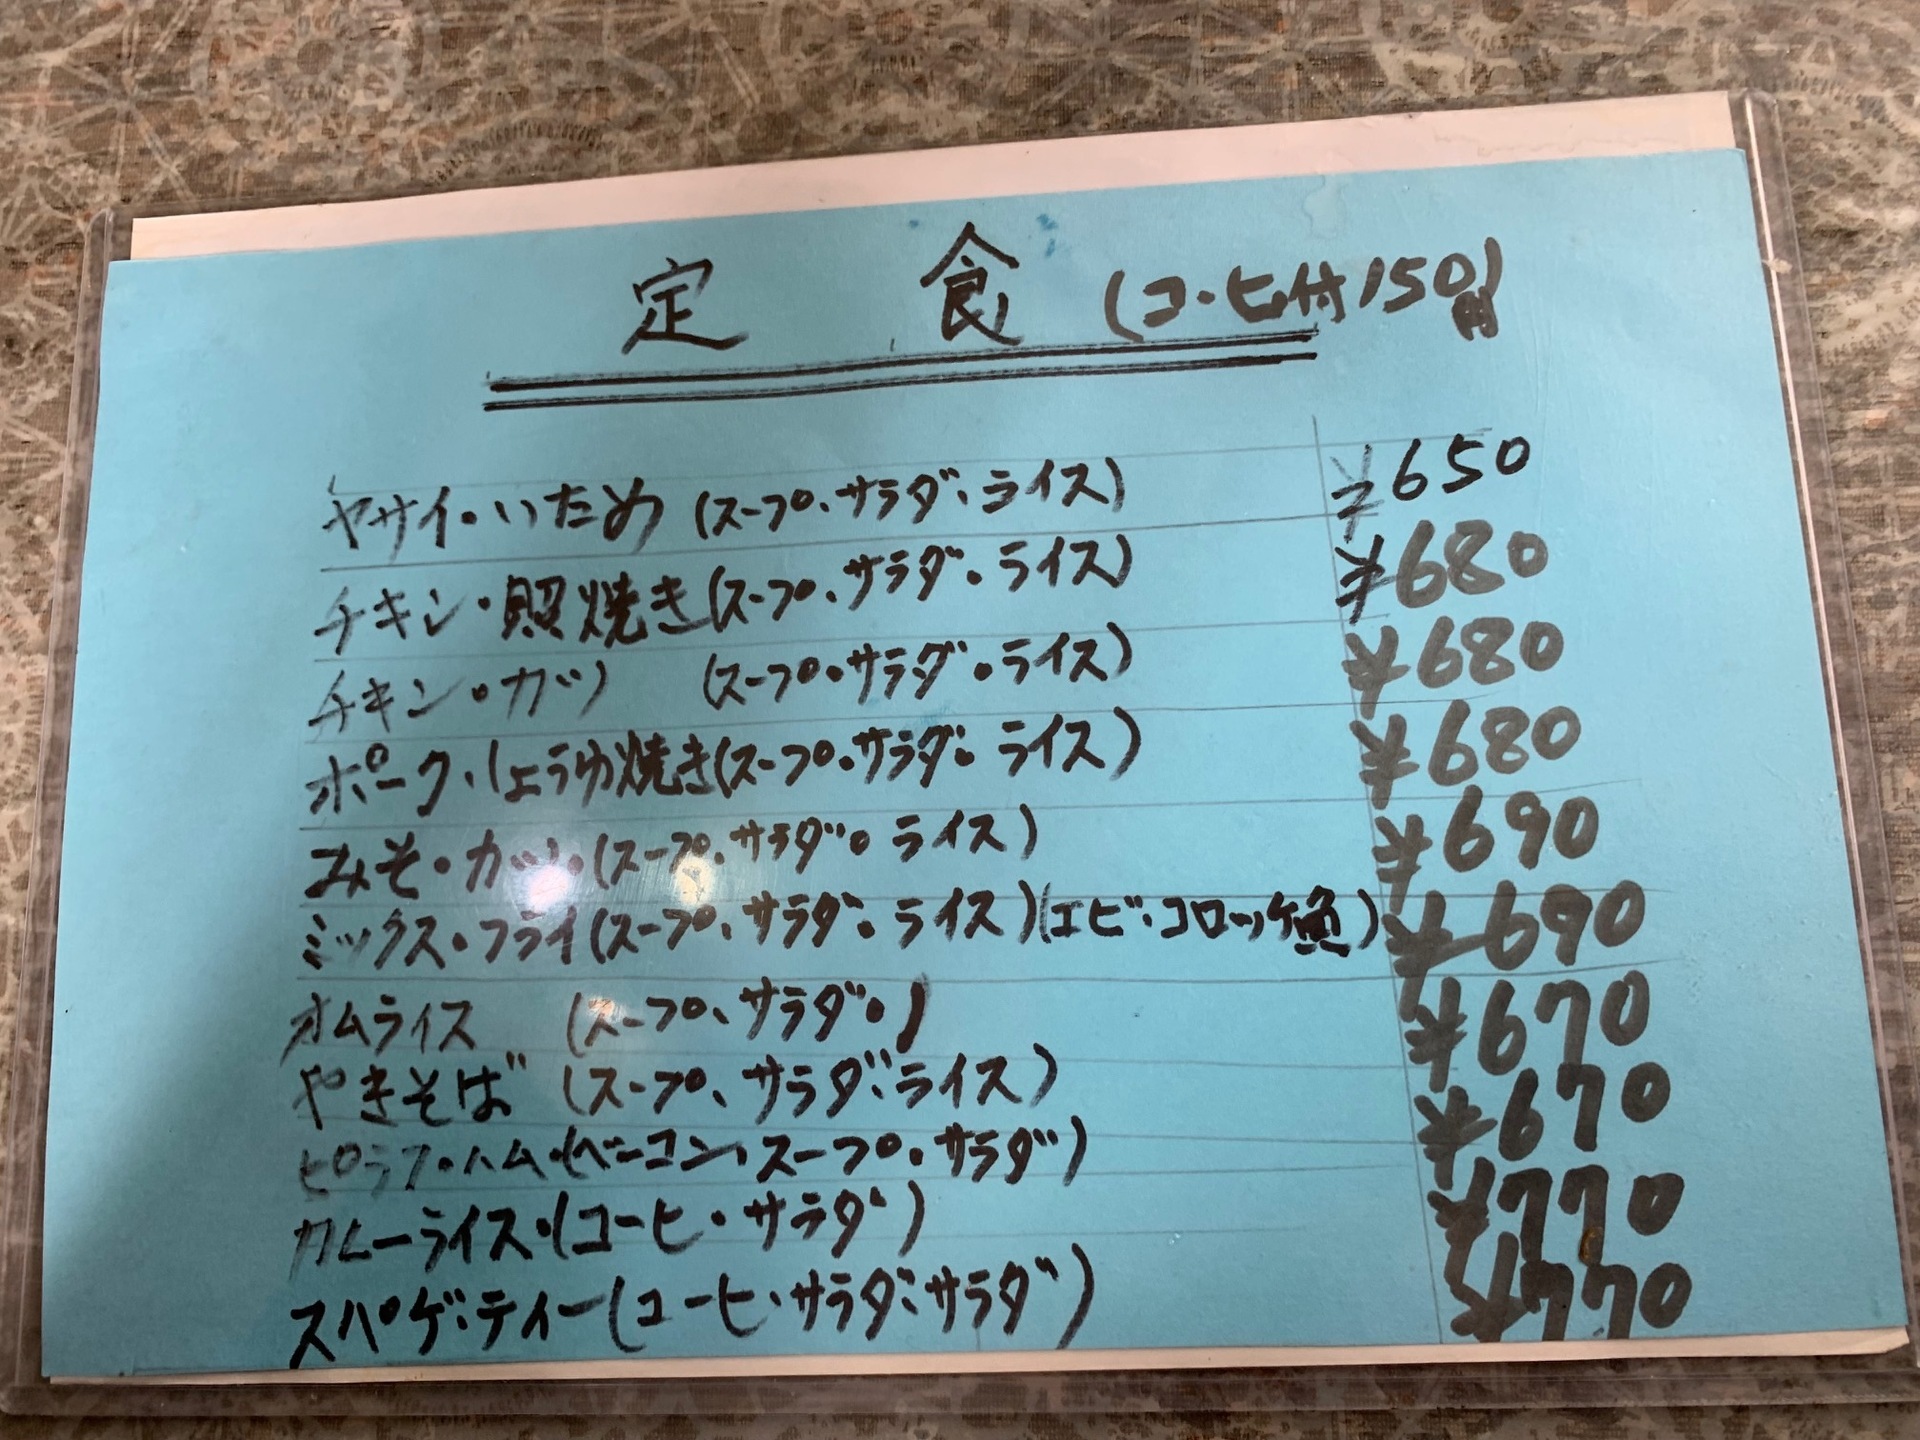 定 食 (コ・ヒ付150円)
ヤサイ・いため (スープ、サラダ、ライス) ¥650
チキン・照焼き(スープ、サラダ・ライス) ¥680
チキン・カツ (スープ・サラダ・ライス) ¥680
ポーク・しょうゆ焼き(スープ・サラダ・ライス) ¥680
みそ・カツ・(スープ、サラダ・ライス) ¥690
ミックス・フライ(スープ、サラダ・ライス)(エビ・コロッケ魚) ¥690
オムライス (スープ、サラダ・) ¥670
やきそば (スープ、サラダ・ライス) ¥670
ピラフ・ハム・(ベーコン、スープ・サラダ) ¥770
カレーライス・(コーヒ・サラダ) ¥770
スパゲ・ティー(コーヒ・サラダ・サラダ)